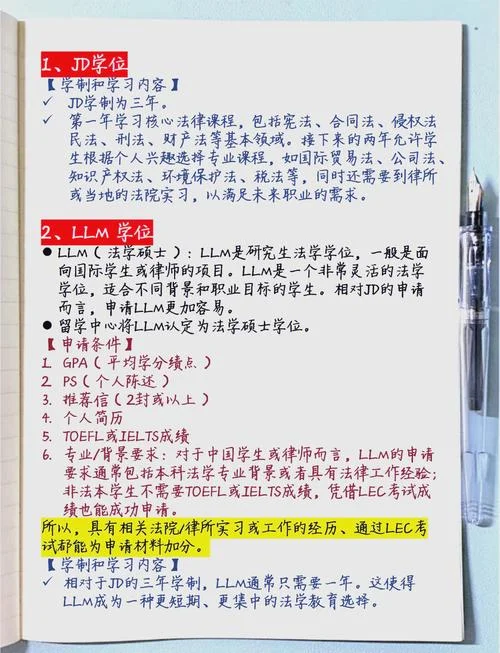 1、JD学位
【学制和学习内容】
✓ JD学制为三年。
✓ 第一年学习核心法律课程，包括宪法、合同法、侵权法
民法、刑法、财产法等基本领域。接下来的两年允许学
生根据个人兴趣选择专业课程，如国际贸易法、公司法、
知识产权法、环境保护法、税法等，同时还需要到律所
或当地的法院实习，以满足未来职业的需求。
2、LLM 学位
●LLM（法学硕士）：LLM是研究生法学学位，一般是面
向国际学生或律师的项目。LLM是一个非常灵活的法学
学位，适合不同背景和职业目标的学生。相对JD的申请
而言，申请LLM更加容易。
●留学中心将LLM认定为法学硕士学位。
【申请条件】
1. GPA（平均学分绩点）
2. PS（个人陈述）
3. 推荐信（2封或以上）
4. 个人简历
5. TOEFL或IELTS成绩
6. 专业/背景要求：对于中国学生或律师而言，LLM的申请
要求通常包括本科法学专业背景或者具有法律工作经验；
非法本学生不需要TOEFL或IELTS成绩，凭借LEC考试成
绩也能成功申请。
所以，具有相关法院/律所实习或工作的经历、通过LEC考
试都能为申请材料加分。
【学制和学习内容】
✓ 相对于JD的三年学制，LLM通常只需要一年。这使得
LLM成为一种更短期、更集中的法学教育选择。